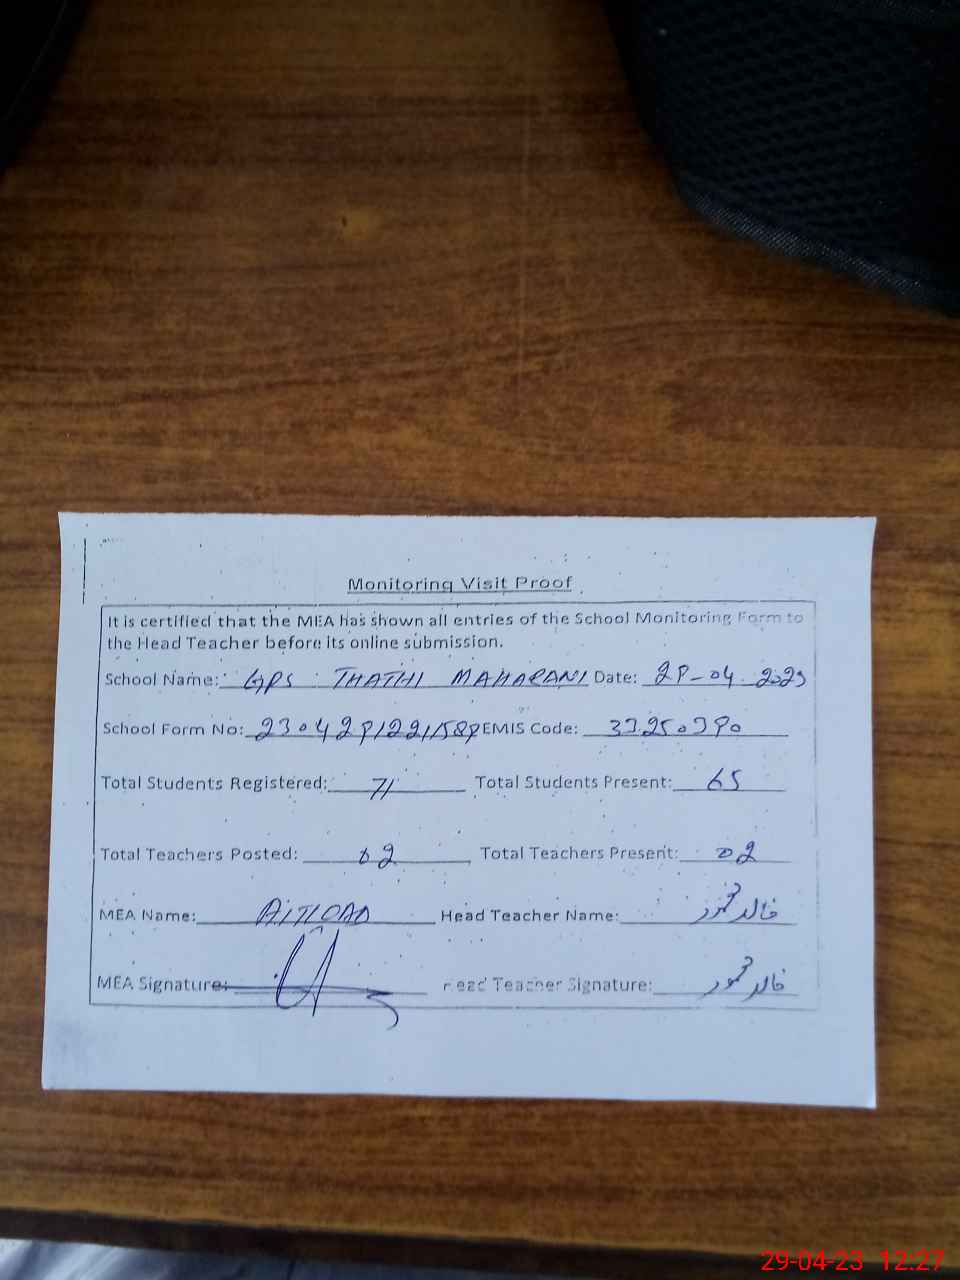 Monitoring Visit Proof
It is certified that the MEA has shown all entries of the School Monitoring Form to
the Head Teacher before its online submission.
School Name: GPS THATHI MAHARANI Date: 29-04-2023
School Form No: 230429/221/589 EMIS Code: 33250390
Total Students Registered: 71 Total Students Present: 65
Total Teachers Posted: 02 Total Teachers Present: 02
MEA Name: Head Teacher Name: خالد محمود
MEA Signature: Head Teacher Signature: خالد محمود
29-04-23 12:27